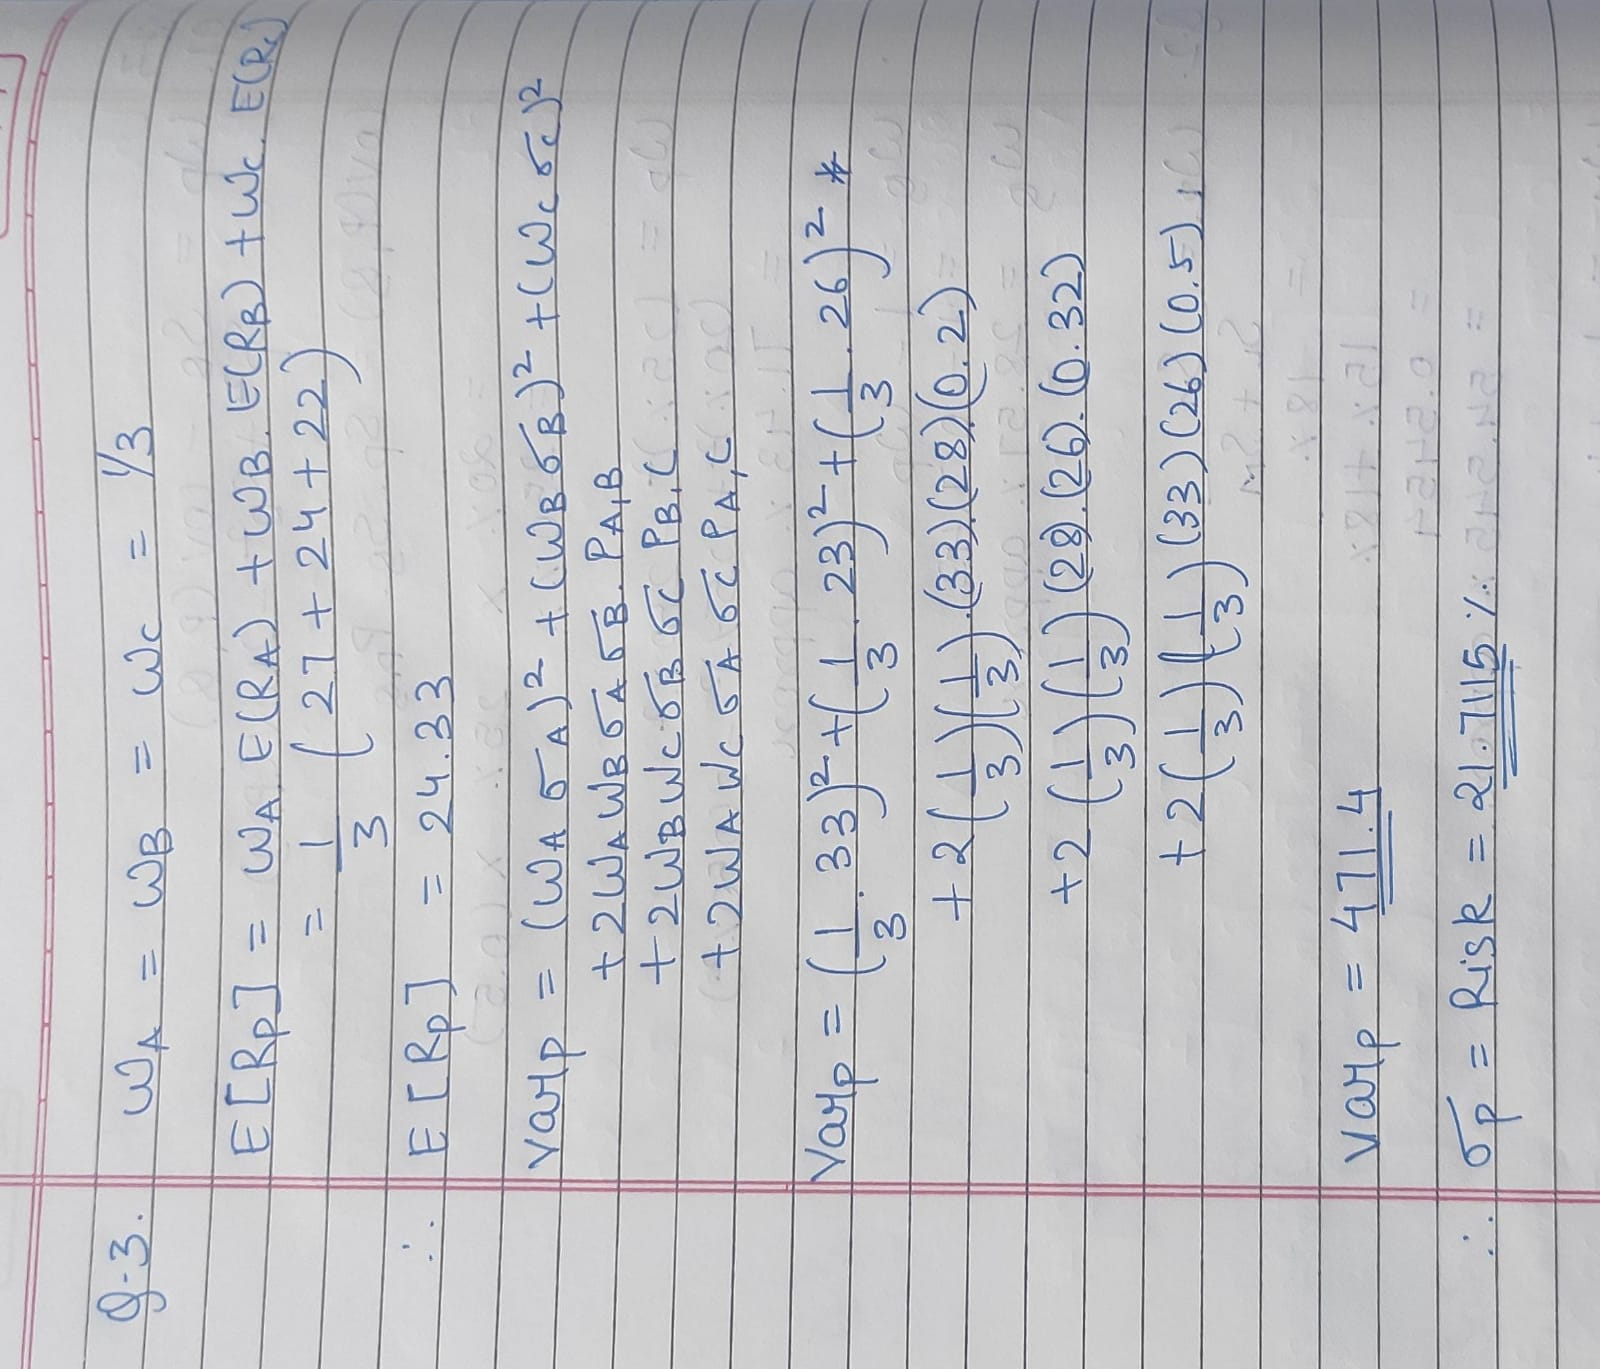 Q-3. WA = WB = WC = 1/3
E[Rp] = WA. E(RA) + WB. E(RB) + WC. E(RC)
= 1/3 (27 + 24 + 22)
∴ E[Rp] = 24.33
Varp = (WA σA)² + (WB σB)² + (WC σC)²
+ 2WA WB σA σB. PA,B
+ 2WB WC σB σC PB,C
+ 2WA WC σA σC PA,C
Varp = (1/3 . 33)² + (1/3 . 23)² + (1/3 . 26)² *
+ 2(1/3)(1/3).(33).(28)(0.2)
+ 2(1/3)(1/3)(28).(26).(0.32)
+ 2(1/3)(1/3)(33)(26)(0.5)
Varp = 471.4
∴ σp = Risk = 21.7115 %